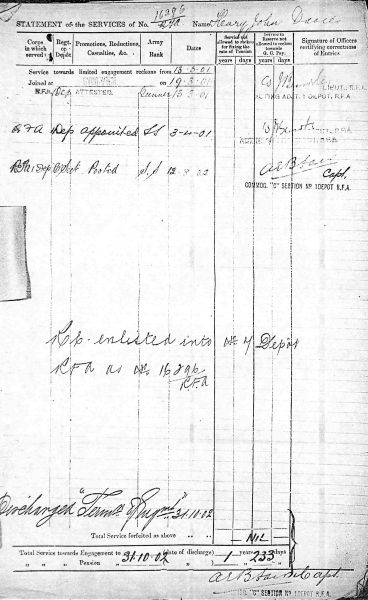 16896
STATEMENT of the SERVICES of No. Name Henry John Davies
Corps in which served
Regt. or Depôt
Promotions, Reductions, Casualties, &c.
Army Rank
Dates
Service not allowed to reckon for fixing the rate of Pension
years days
Service in Reserve not allowed to reckon towards G. C. Pay.
years days
Signature of Officers certifying corrections of Entries
Service towards limited engagement reckons from 13-3-01
Joined at on 19-3-01
R.F.A. Dep ATTESTED Gunner 13-3-01
LIEUT. R.F.A.
ACTING ADJT. 1 DEPOT, R.F.A.
RFA Dep appointed SS 3-4-01
Dep Posted S.S 12
Capt.
COMMDG. "C" SECTION No 1 DEPOT R.F.A.
Re-enlisted into No 4 Depot
RFA as No 16896
R.F.A
Discharged "Term of Engmt" 31-10-02
Total Service forfeited as above — NIL —
Total Service towards Engagement to 31-10-02 (date of discharge) 1 years 233 days
Pension
Capt.
COMMDG. "C" SECTION No 1 DEPOT R.F.A.